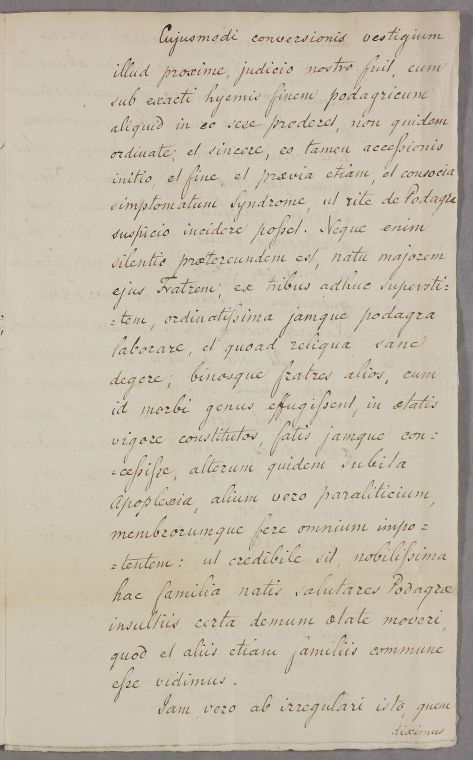 Cujusmodi conversionis vestigium
illud proxime, judicio nostro fuit, cum
sub exacti hyemis finem podagricum
aliquid in eo sese proderet, non quidem
ordinate, et sincere, eo tamen accessionis
initio, et fine, et prævia etiam, et consocia
simptomatum Syndrome, ut rite de Podagra
suspicio incidere posset. Neque enim
silentio prætereundem est, natu majorem
ejus Fratrem, ex tribus adhuc superviti-
-tem, ordinatissima jamque podagra
laborare, et quoad reliqua sane
degere; binosque fratres alios, cum
id morbi genus effugissent, in ætatis
vigore constitutos, fatis jamque con-
-cessisse, alterum quidem subita
Apoplexia, alium vero paraliticium,
membrorumque fere omnium impo-
-tentem: ut credibile sit, nobilissima
hac familia natis salutares Podagræ
insultiis certa demum ætate moveri,
quod et aliis etiam familiis commune
esse vidimus.
Iam vero ab irregulari isto, quem
diximus